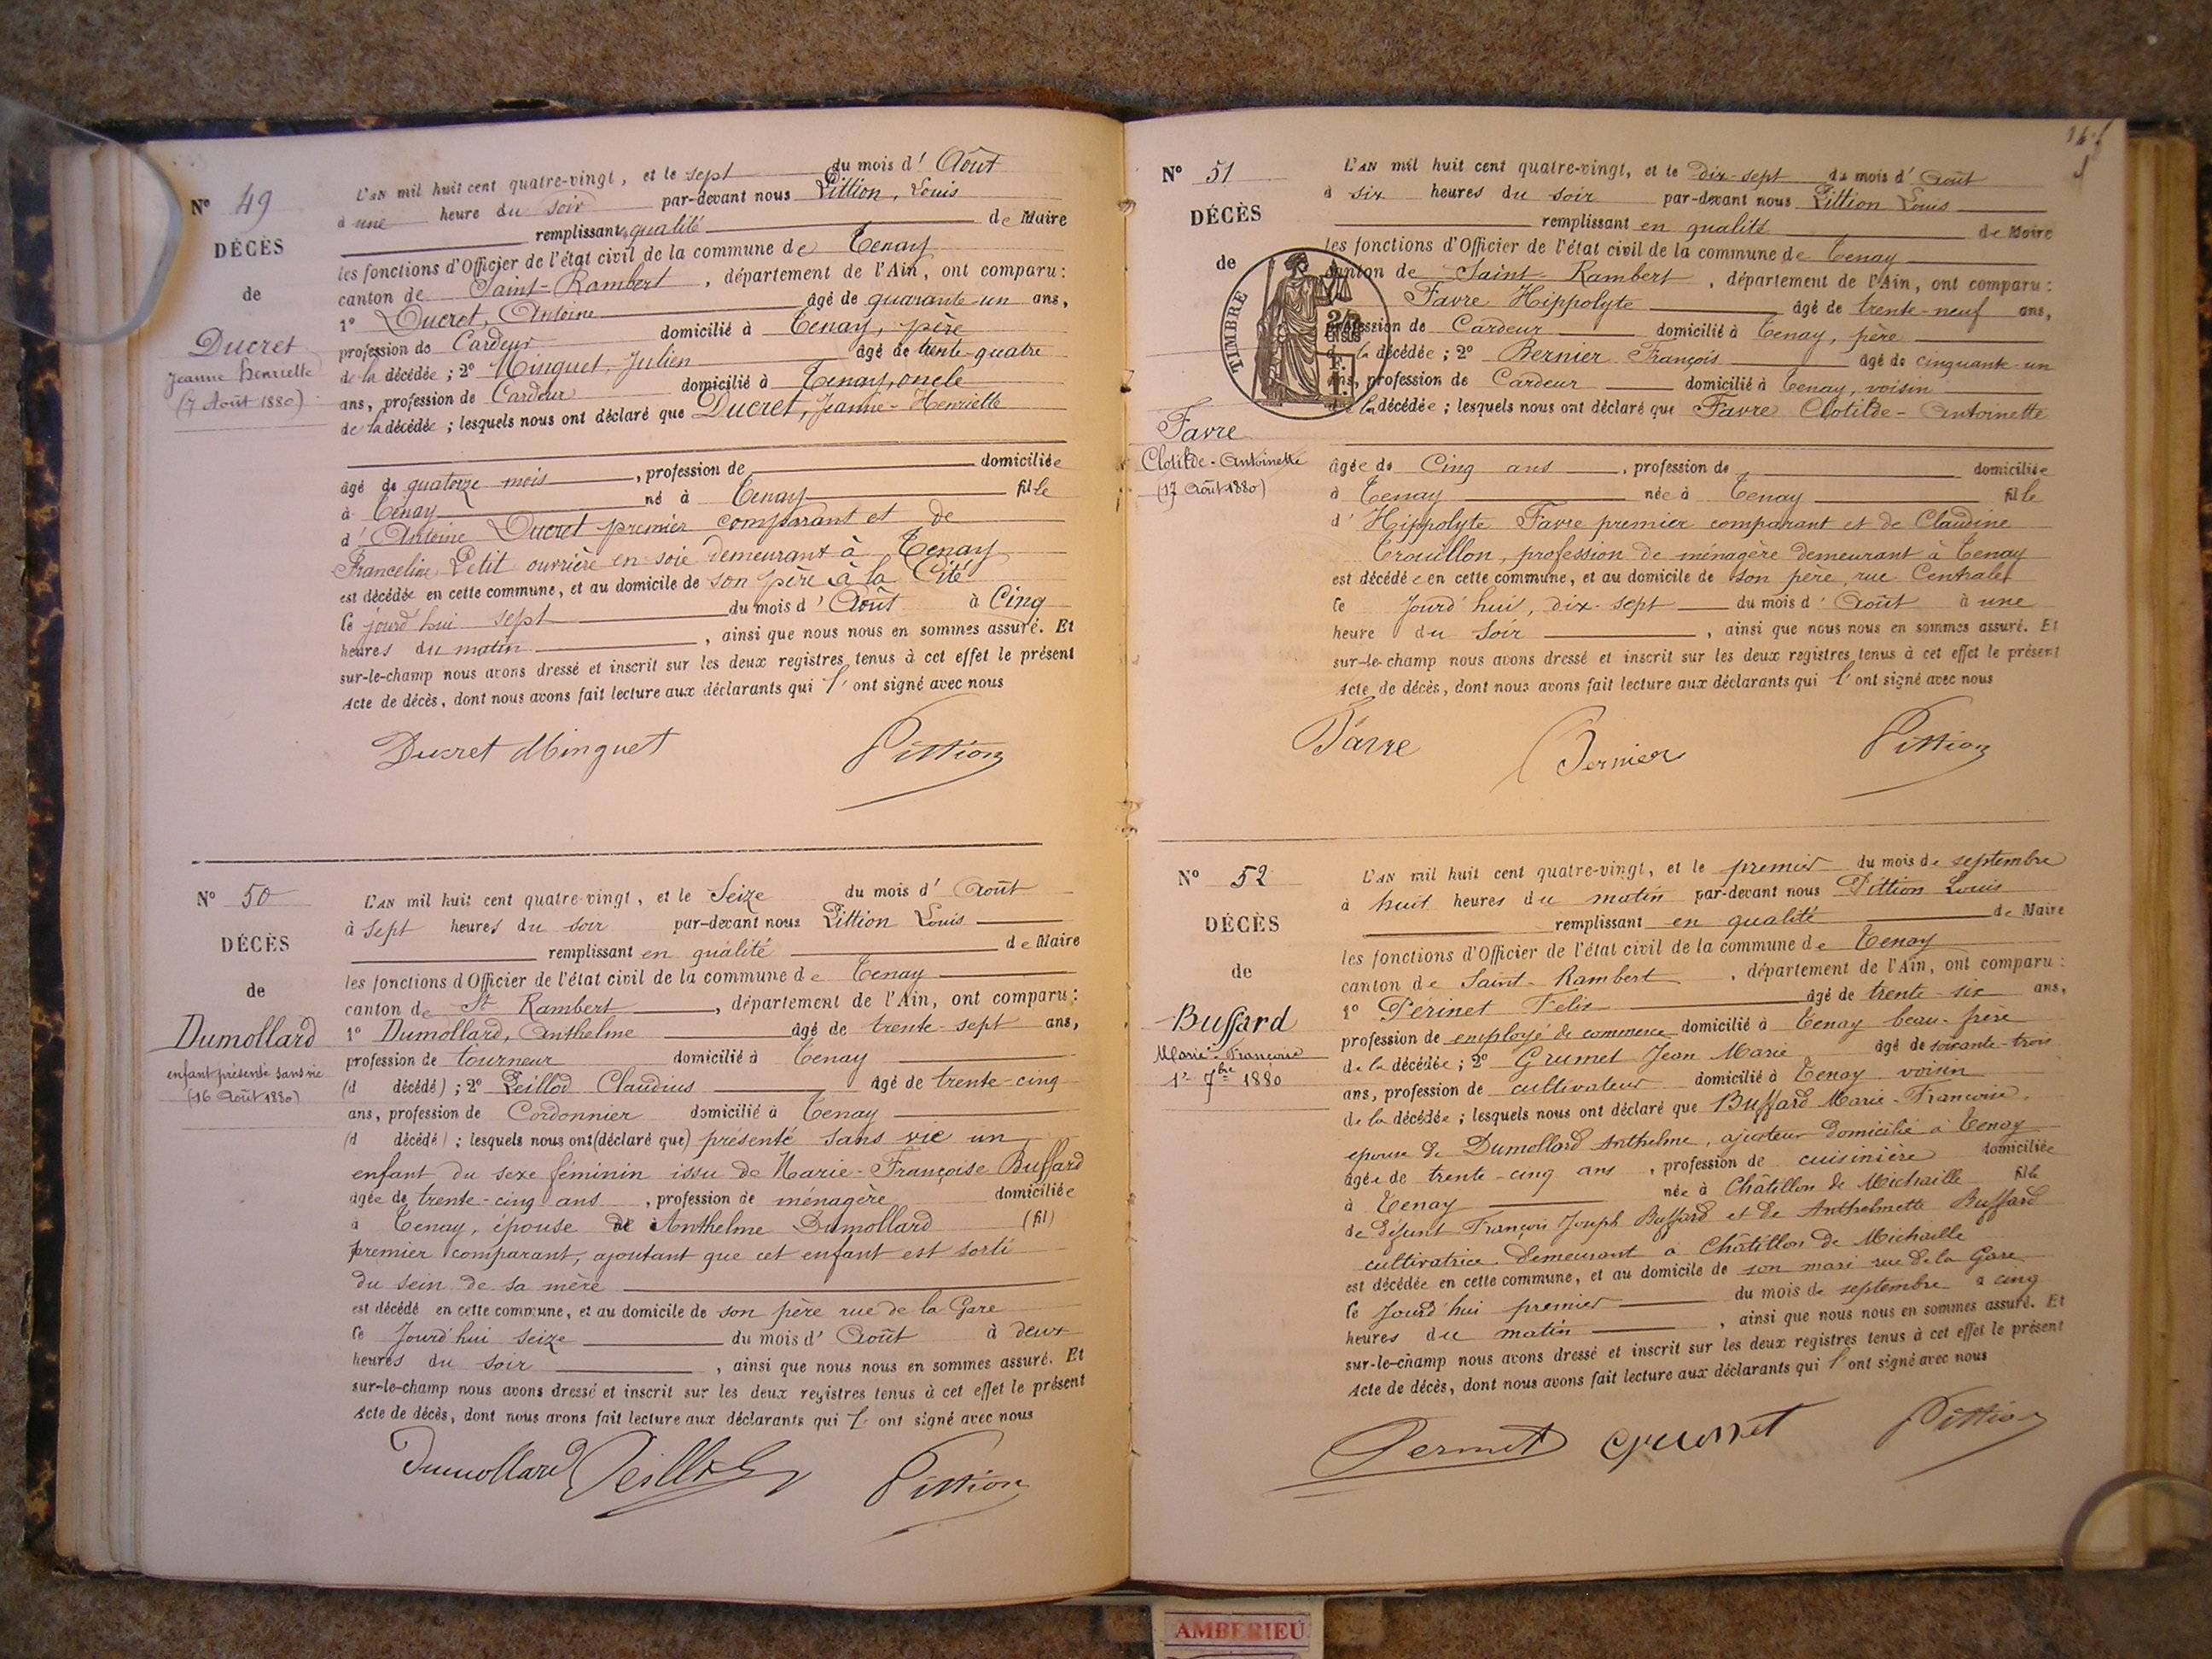 Nº 49
DÉCÈS
de
Ducret
Jeanne Henriette
(7 Août 1880)
L'AN mil huit cent quatre-vingt, et le sept du mois d' Août
à une heure du soir par-devant nous Pittion, Louis
remplissant en qualité de Maire
les fonctions d'Officier de l'état civil de la commune de Tenay
canton de Saint-Rambert, département de l'Ain, ont comparu:
1º Ducret, Antoine âgé de quarante-un ans,
profession de Cardeur domicilié à Tenay, père
de la décédée; 2º Minguet, Julien âgé de trente-quatre
ans, profession de Cardeur domicilié à Tenay, oncle
de la décédée; lesquels nous ont déclaré que Ducret, Jeanne-Henriette
âgé de quatorze mois, profession de domiciliée
à Tenay né à Tenay fille
d'Antoine Ducret premier comparant et de
Franceline Petit ouvrière en soie demeurant à Tenay
est décédée en cette commune, et au domicile de son père à la Cité
ce jourd'hui sept du mois d'Août à Cinq
heures du matin, ainsi que nous nous en sommes assuré. Et
sur-le-champ nous avons dressé et inscrit sur les deux registres tenus à cet effet le présent
Acte de décès, dont nous avons fait lecture aux déclarants qui l'ont signé avec nous
Ducret Minguet Pittion
Nº 50
DÉCÈS
de
Dumollard
enfant présenté sans vie
(16 Août 1880)
L'AN mil huit cent quatre-vingt, et le Seize du mois d' Août
à sept heures du soir par-devant nous Pittion Louis
remplissant en qualité de Maire
les fonctions d'Officier de l'état civil de la commune de Tenay
canton de St Rambert, département de l'Ain, ont comparu:
1º Dumollard, Anthelme âgé de trente-sept ans,
profession de tourneur domicilié à Tenay
(d décédé); 2º Peillod Claudius âgé de trente-cinq
ans, profession de Cordonnier domicilié à Tenay
(d décédé); lesquels nous ont (déclaré que) présenté sans vie un
enfant du sexe féminin issu de Marie-Françoise Buffard
âgée de trente-cinq ans, profession de ménagère domiciliée
à Tenay, épouse de Anthelme Dumollard (fil)
premier comparant, ajoutant que cet enfant est sorti
du sein de sa mère
est décédé en cette commune, et au domicile de son père rue de la Gare
ce Jourd'hui seize du mois d' Août à deux
heures du soir, ainsi que nous nous en sommes assuré. Et
sur-le-champ nous avons dressé et inscrit sur les deux registres tenus à cet effet le présent
Acte de décès, dont nous avons fait lecture aux déclarants qui l'ont signé avec nous
Dumollard Peillod Pittion
Nº 51
DÉCÈS
de
TIMBRE
25
CENTIMES
Favre
Clotilde-Antoinette
(17 Août 1880)
L'AN mil huit cent quatre-vingt, et le Dix-sept du mois d' Août
à six heures du soir par-devant nous Pittion Louis
remplissant en qualité de Maire
les fonctions d'Officier de l'état civil de la commune de Tenay
canton de Saint-Rambert, département de l'Ain, ont comparu:
Favre Hippolyte âgé de trente-neuf ans,
profession de Cardeur domicilié à Tenay, père
de la décédée; 2º Bernier François âgé de cinquante-un
ans, profession de Cardeur domicilié à Tenay, voisin
de la décédée; lesquels nous ont déclaré que Favre Clotilde-Antoinette
âgée de Cinq ans, profession de domiciliée
à Tenay née à Tenay fille
d' Hippolyte Favre premier comparant et de Claudine
Trouillon, profession de ménagère demeurant à Tenay
est décédée en cette commune, et au domicile de son père, rue Centrale
ce Jourd'hui, dix-sept du mois d' Août à une
heure du soir, ainsi que nous nous en sommes assuré. Et
sur-le-champ nous avons dressé et inscrit sur les deux registres tenus à cet effet le présent
Acte de décès, dont nous avons fait lecture aux déclarants qui l'ont signé avec nous
Favre Bernier Pittion
Nº 52
DÉCÈS
de
Buffard
Marie-Françoise
1er 7bre 1880
L'AN mil huit cent quatre-vingt, et le premier du mois de septembre
à huit heures du matin par-devant nous Pittion Louis
remplissant en qualité de Maire
les fonctions d'Officier de l'état civil de la commune de Tenay
canton de Saint-Rambert, département de l'Ain, ont comparu:
1º Périnet Félix âgé de trente-six ans,
profession de employé de commerce domicilié à Tenay beau-frère
de la décédée; 2º Grumet Jean Marie âgé de soixante-trois
ans, profession de cultivateur domicilié à Tenay voisin
de la décédée; lesquels nous ont déclaré que Buffard Marie-Françoise,
épouse de Dumollard Anthelme, ajusteur domicilié à Tenay
âgée de trente-cinq ans, profession de cuisinière domiciliée
à Tenay née à Châtillon de Michaille fille
de défunt François Joseph Buffard et de Anthelmette Buffard
cultivatrice demeurant à Châtillon de Michaille
est décédée en cette commune, et au domicile de son mari rue de la Gare
ce Jourd'hui premier du mois de septembre à cinq
heures du matin, ainsi que nous nous en sommes assuré. Et
sur-le-champ nous avons dressé et inscrit sur les deux registres tenus à cet effet le présent
Acte de décès, dont nous avons fait lecture aux déclarants qui l'ont signé avec nous
Grumet Pittion
AMBERIEU